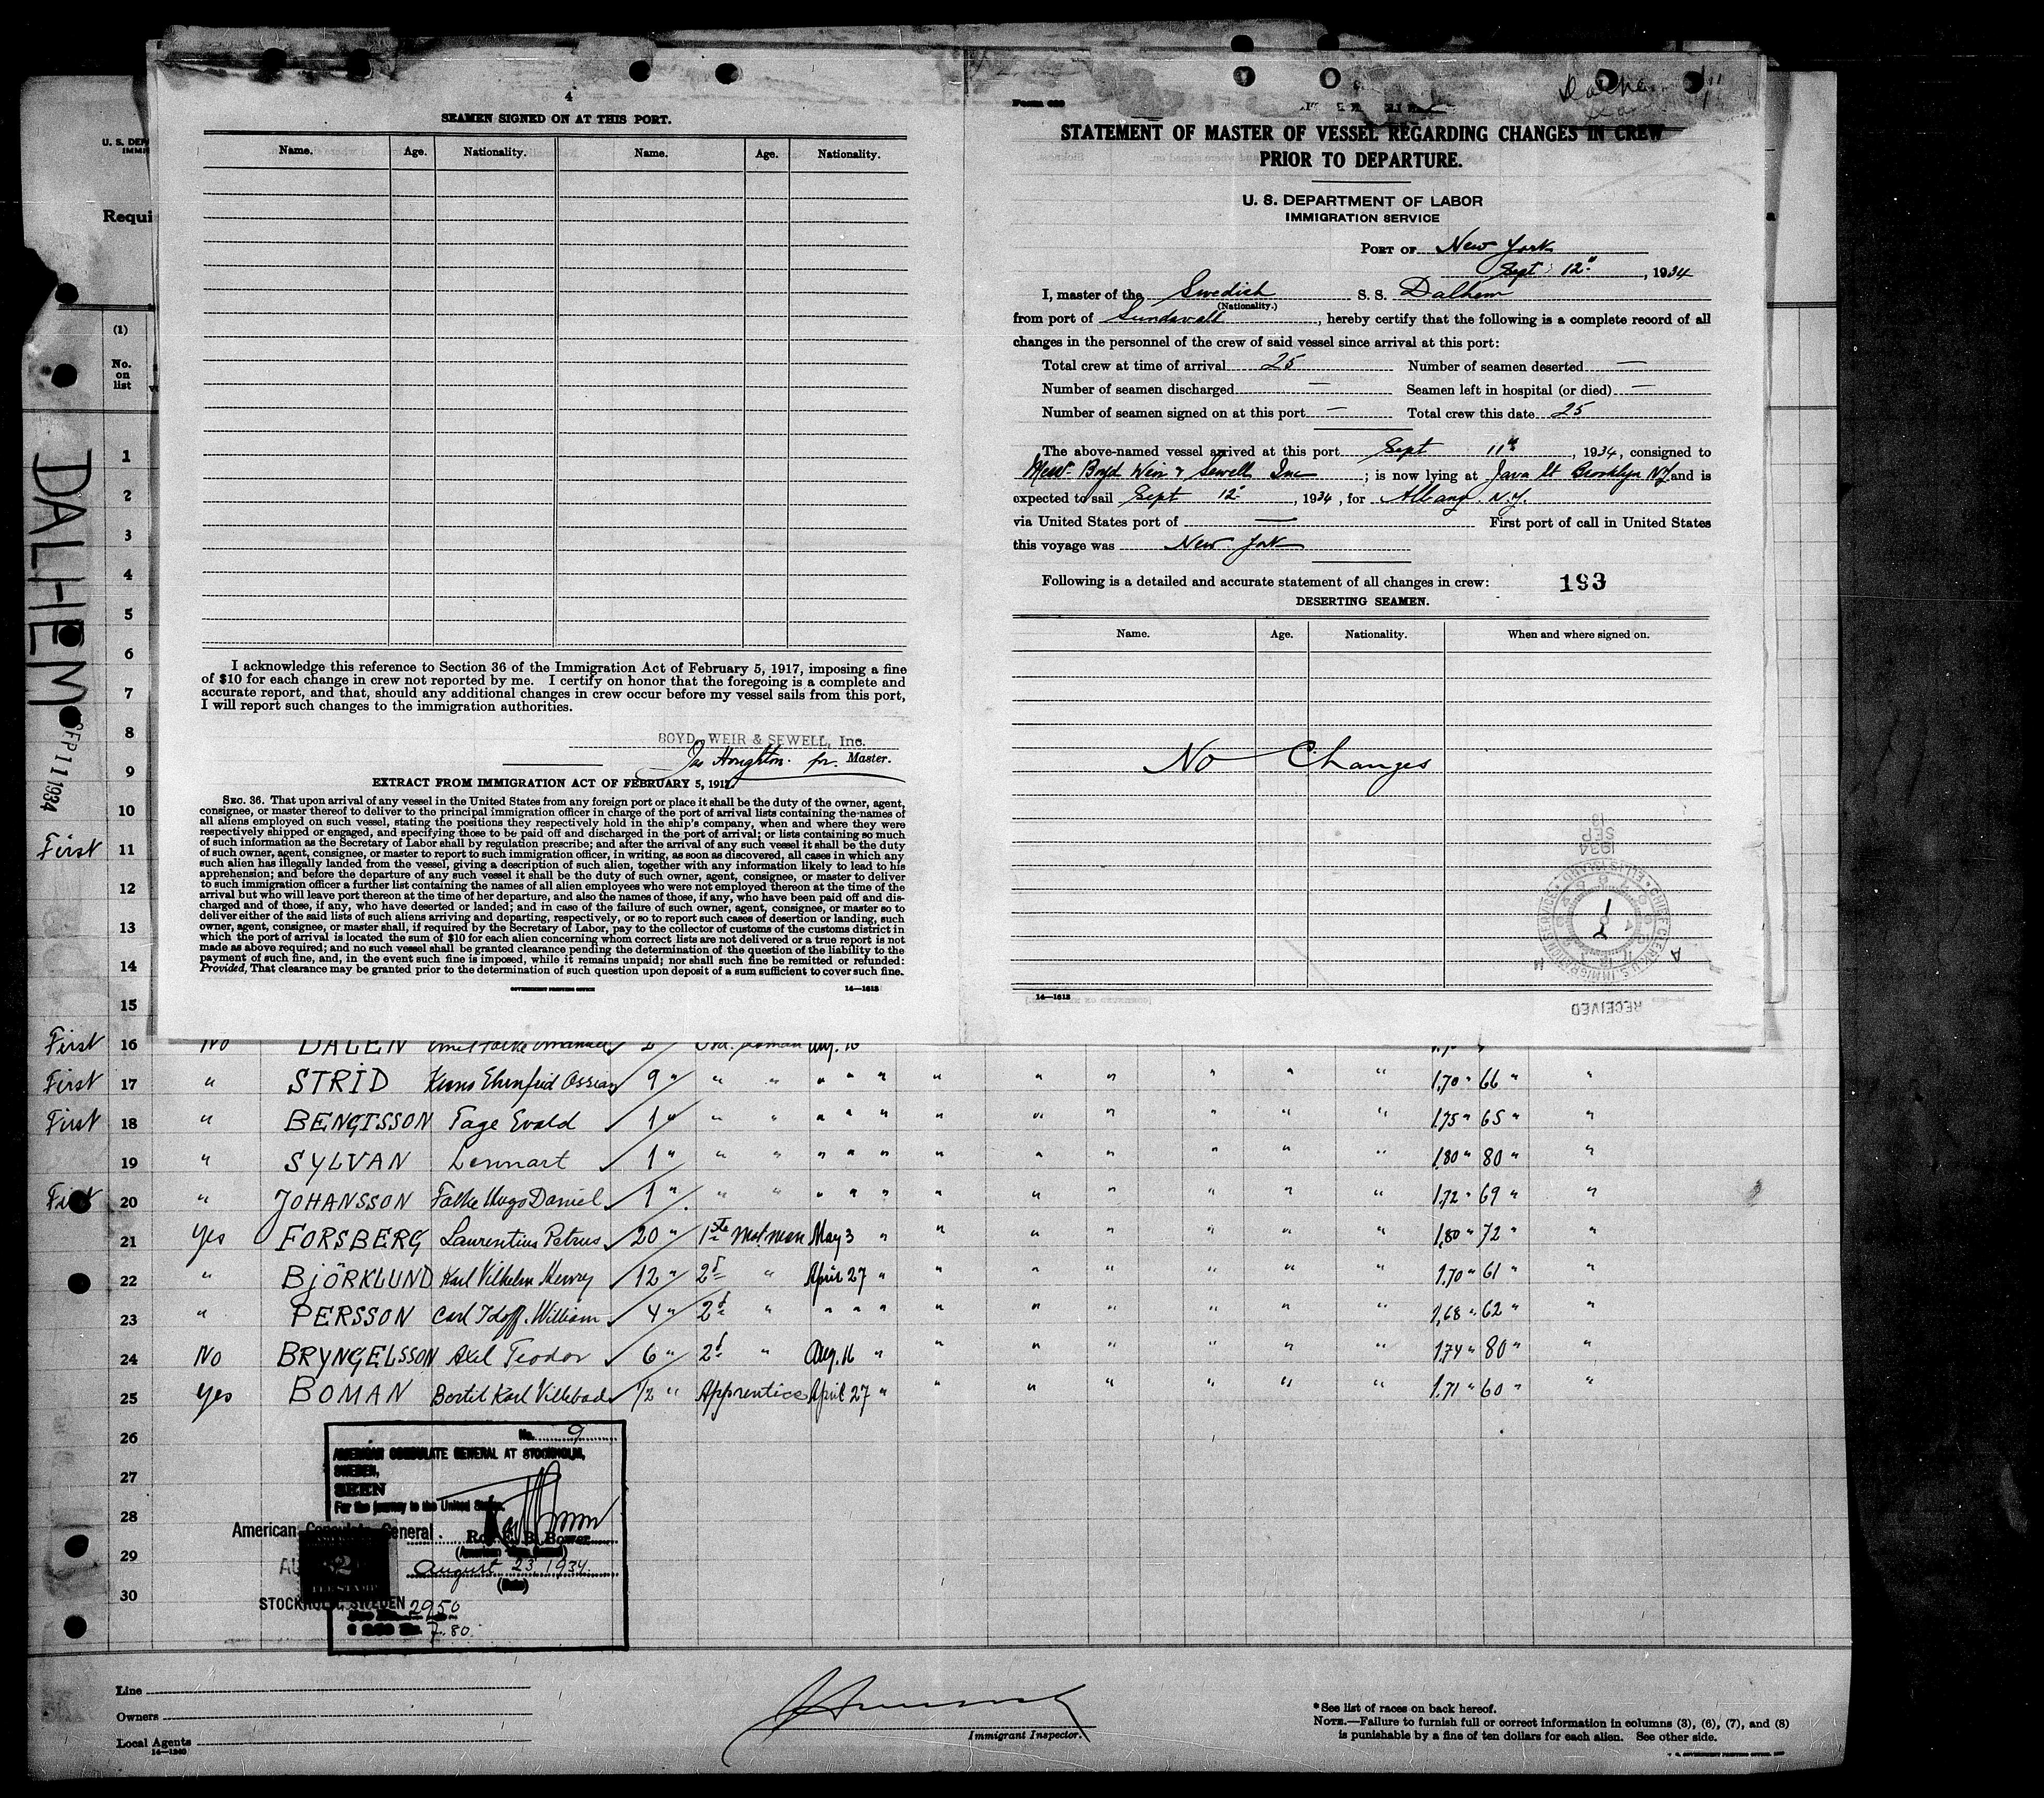 4
SEAMEN SIGNED ON AT THIS PORT.
Name. Age. Nationality. Name. Age. Nationality.
I acknowledge this reference to Section 36 of the Immigration Act of February 5, 1917, imposing a fine
of $10 for each change in crew not reported by me. I certify on honor that the foregoing is a complete and
accurate report, and that, should any additional changes in crew occur before my vessel sails from this port,
I will report such changes to the immigration authorities.
BOYD, WEIR & SEWELL, Inc.
Jas Houghton. for Master.
EXTRACT FROM IMMIGRATION ACT OF FEBRUARY 5, 1917.
SEC. 36. That upon arrival of any vessel in the United States from any foreign port or place it shall be the duty of the owner, agent,
consignee, or master thereof to deliver to the principal immigration officer in charge of the port of arrival lists containing the names of
all aliens employed on such vessel, stating the positions they respectively hold in the ship's company, when and where they were
respectively shipped or engaged, and specifying those to be paid off and discharged in the port of arrival; or lists containing so much
of such information as the Secretary of Labor shall by regulation prescribe; and after the arrival of any such vessel it shall be the duty
of such owner, agent, consignee, or master to report to such immigration officer, in writing, as soon as discovered, all cases in which any
such alien has illegally landed from the vessel, giving a description of such alien, together with any information likely to lead to his
apprehension; and before the departure of any such vessel it shall be the duty of such owner, agent, consignee, or master to deliver
to such immigration officer a further list containing the names of all alien employees who were not employed thereon at the time of the
arrival but who will leave port thereon at the time of her departure, and also the names of those, if any, who have been paid off and dis-
charged and of those, if any, who have deserted or landed; and in case of the failure of such owner, agent, consignee, or master so to
deliver either of the said lists of such aliens arriving and departing, respectively, or so to report such cases of desertion or landing, such
owner, agent, consignee, or master shall, if required by the Secretary of Labor, pay to the collector of customs of the customs district in
which the port of arrival is located the sum of $10 for each alien concerning whom correct lists are not delivered or a true report is not
made as above required; and no such vessel shall be granted clearance pending the determination of the question of the liability to the
payment of such fine, and, in the event such fine is imposed, while it remains unpaid; nor shall such fine be remitted or refunded:
Provided, That clearance may be granted prior to the determination of such question upon deposit of a sum sufficient to cover such fine.
GOVERNMENT PRINTING OFFICE 14—1613
Form 689
STATEMENT OF MASTER OF VESSEL REGARDING CHANGES IN CREW
PRIOR TO DEPARTURE.
U. S. DEPARTMENT OF LABOR
IMMIGRATION SERVICE
PORT OF New York
Sept 12", 1934
I, master of the Swedish S. S. Dalhem
(Nationality.)
from port of Sundsvall, hereby certify that the following is a complete record of all
changes in the personnel of the crew of said vessel since arrival at this port:
Total crew at time of arrival 25 Number of seamen deserted —
Number of seamen discharged — Seamen left in hospital (or died) —
Number of seamen signed on at this port — Total crew this date 25
The above-named vessel arrived at this port Sept 11th, 1934, consigned to
Messrs Boyd Weir & Sewell Inc; is now lying at Java St Brooklyn NY and is
expected to sail Sept 12", 1934, for Albany N.Y.
via United States port of — First port of call in United States
this voyage was New York
Following is a detailed and accurate statement of all changes in crew: 193
DESERTING SEAMEN.
Name. Age. Nationality. When and where signed on.
No Changes
1934
SEP
13
CHIEF CLERK U.S. IMMIGRATION SERVICE
ELLIS ISLAND
RECEIVED
14—1613
U. S. DEP
IMMI
Requi
(1)
No.
on
list
DALHEM
SEP 11 1934
1
2
3
4
5
6
7
8
9
10
First 11
12
13
14
15
First 16 No DALEN
First 17 " STRID Ossian 9 " " " " " " " " " " " " 1,70 " 66 " "
First 18 " BENGTSSON Tage Evald 1 " " " " " " " " " " " " 1,75 " 65 " "
19 " SYLVAN Lennart 1 " " " " " " " " " " " " 1,80 " 80 " "
First 20 " JOHANSSON Folke Hugo Daniel 1 " " " " " " " " " " " " 1,72 " 69 " "
21 Yes FORSBERG Laurentius Petrus 20 " 1st Mot.man May 3 " " " " " " " 1,80 " 72 " "
22 " BJÖRKLUND Karl Vilhelm Henry 12 " 2d " April 27 " " " " " " " 1,70 " 61 " "
23 " PERSSON Carl William 4 " 2d " " " " " " " " " " 1,68 " 62 " "
24 No BRYNGELSSON Axel Teodor 6 " 2d " Aug. 16 " " " " " " " 1,74 " 80 " "
25 Yes BOMAN Bertil Karl Villebad 1/2 " Apprentice April 27 " " " " " " " 1,71 " 60 " "
26
27
28
29
30
No. 9
AMERICAN CONSULATE GENERAL AT STOCKHOLM,
SWEDEN,
SEEN
For the journey to the United States.
American Consulate General
Roy E. B. Bower
August 23 1934
(Date)
STOCKHOLM, SWEDEN
2950
7.80
Line
Owners
Local Agents
14—1240
Immigrant Inspector.
*See list of races on back hereof.
NOTE.—Failure to furnish full or correct information in columns (3), (6), (7), and (8)
is punishable by a fine of ten dollars for each alien. See other side.